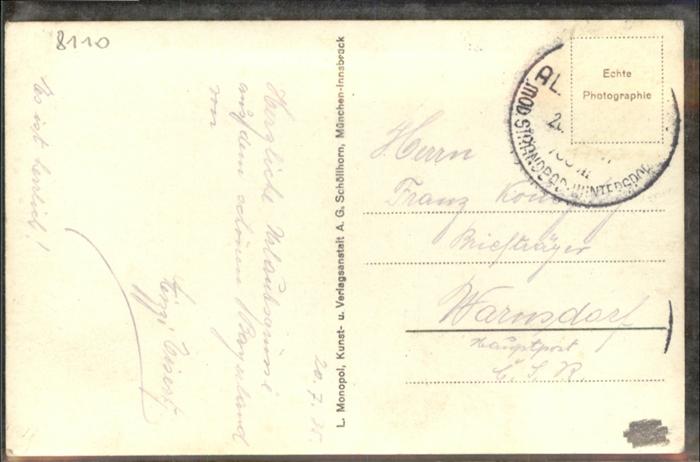 8110
Es ist herrlich!
Herzliche Urlaubsgrüsse
aus dem schönen Bayerland
von
20. 7. 35.
L. Monopol, Kunst- u. Verlagsanstalt A. G. Schöllhorn, München-Innsbruck
Echte
Photographie
MOD. STRANDBAD WINTERSPO
700 m
Herrn
Franz König
Briefträger
Warnsdorf
Hauptpost
Č. S. R.